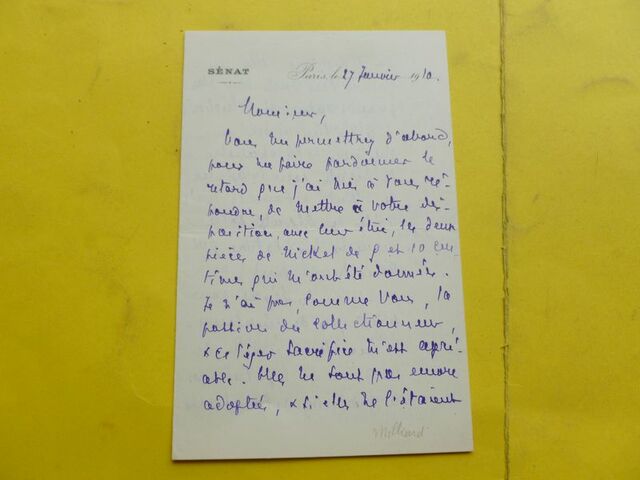 SÉNAT
Paris, le 27 Janvier 1910.
Monsieur,
Vous me permettrez d'abord,
pour me faire pardonner le
retard que j'ai mis à vous ré-
pondre, de mettre à votre dis-
position, avec leur étui, les deux
pièces de nickel de 5 et 10 cen-
times qui m'ont été données.
Je n'ai pas, comme vous, la
passion du collectionneur,
& ce léger sacrifice m'est agré-
able. Elles ne sont pas encore
adoptées, & si elles ne l'étaient
Milliard